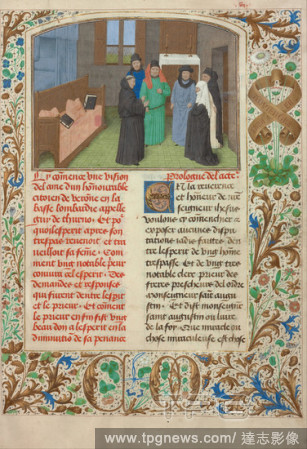 Cy comence une vision
del ame dun honourable
citoien de verone en la
basse lombardie appelle
guy de thurno. Et po
quoy lesperit apres son
trespas revenoit et tra
veilloit sa feme. Et
coment ung notable prieur
convint cel esperit. Des
demandes et responses
qui furent dentre lesprit
et le prieur. Et coment
le prieur en fin fist ung
beau don a lesperit en la
diminution de sa penance
Prologue del acte.
En la reverence
et honeur de nre
seigneur ihesus
voulons cy comencher a
exposer aucunes dispu
tations
dre lesperit de ung home
trespasse. Et de ung tres
notable clerc prieur des
freres prescheurs del ordre
monseigneur saint augu
stin. Et dist monseigneur
saint augustin ou livre
de la foy. Que miracle ou
chose miraculeuse est chose
www.tpgnews.com/ 達志影像